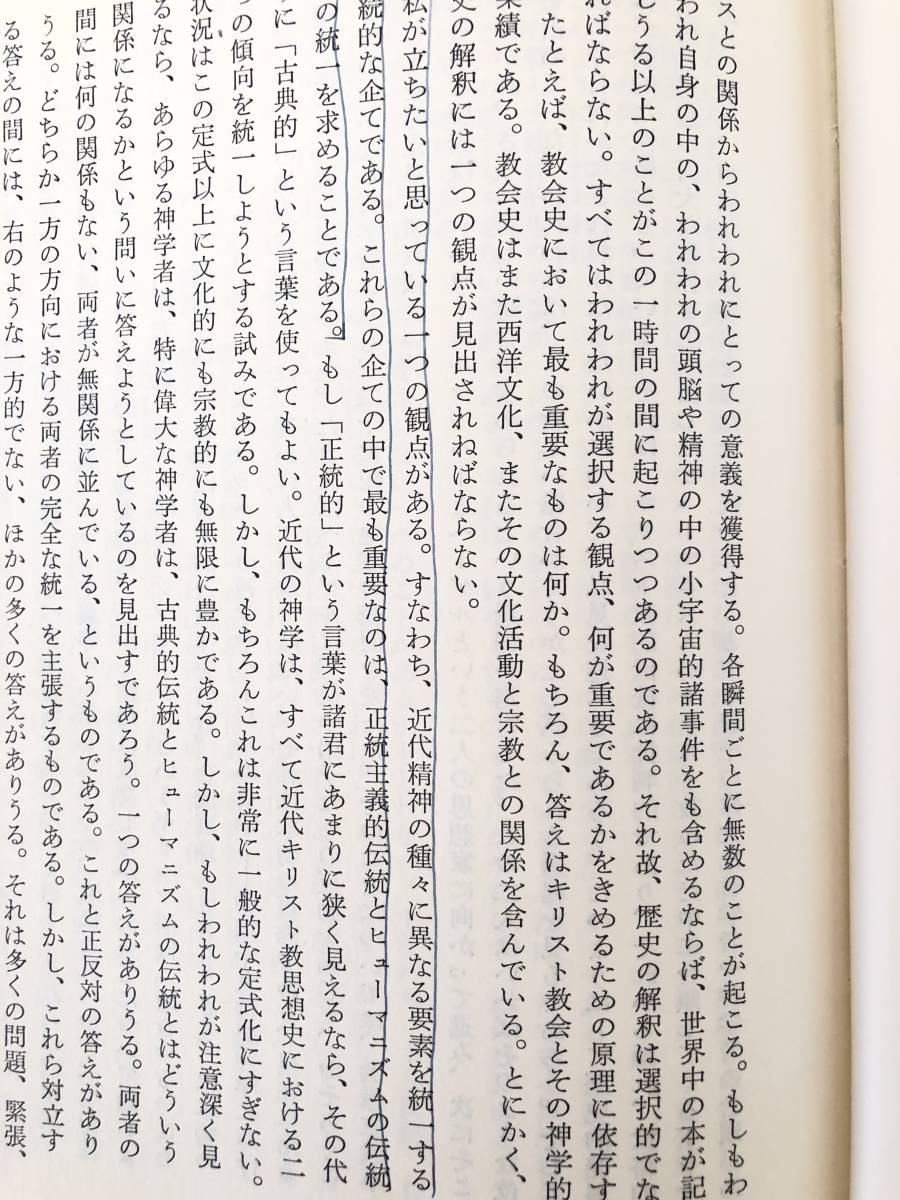 スとの関係からわれわれにとっての意義を獲得する。各瞬間ごとに無数のことが起こる。もしわ
われ自身の中の、われわれの頭脳や精神の中の小宇宙的諸事件をも含めるならば、世界中の本が記
しうる以上のことがこの一時間の間に起こりつつあるのである。それ故、歴史の解釈は選択的でな
ればならない。すべてはわれわれが選択する観点、何が重要であるかをきめるための原理に依存す
たとえば、教会史において最も重要なものは何か。もちろん、答えはキリスト教会とその神学的
業績である。教会史はまた西洋文化、またその文化活動と宗教との関係を含んでいる。とにかく、
史の解釈には一つの観点が見出されねばならない。
私が立ちたいと思っている一つの観点がある。すなわち、近代精神の種々に異なる要素を統一する
統的な企てである。これらの企ての中で最も重要なのは、正統主義的伝統とヒューマニズムの伝統
の統一を求めることである。もし「正統的」という言葉が諸君にあまりに狭く見えるなら、その代
に「古典的」という言葉を使ってもよい。近代の神学は、すべて近代キリスト教思想史における二
つの傾向を統一しようとする試みである。しかし、もちろんこれは非常に一般的な定式化にすぎない。
状況はこの定式以上に文化的にも宗教的にも無限に豊かである。しかし、もしわれわれが注意深く見
るなら、あらゆる神学者は、特に偉大な神学者は、古典的伝統とヒューマニズムの伝統とはどういう
関係になるかという問いに答えようとしているのを見出すであろう。一つの答えがありうる。両者の
間には何の関係もない、両者が無関係に並んでいる、というものである。これと正反対の答えがあり
うる。どちらか一方の方向における両者の完全な統一を主張するものである。しかし、これら対立す
る答えの間には、右のような一方的でない、ほかの多くの答えがありうる。それは多くの問題、緊張、